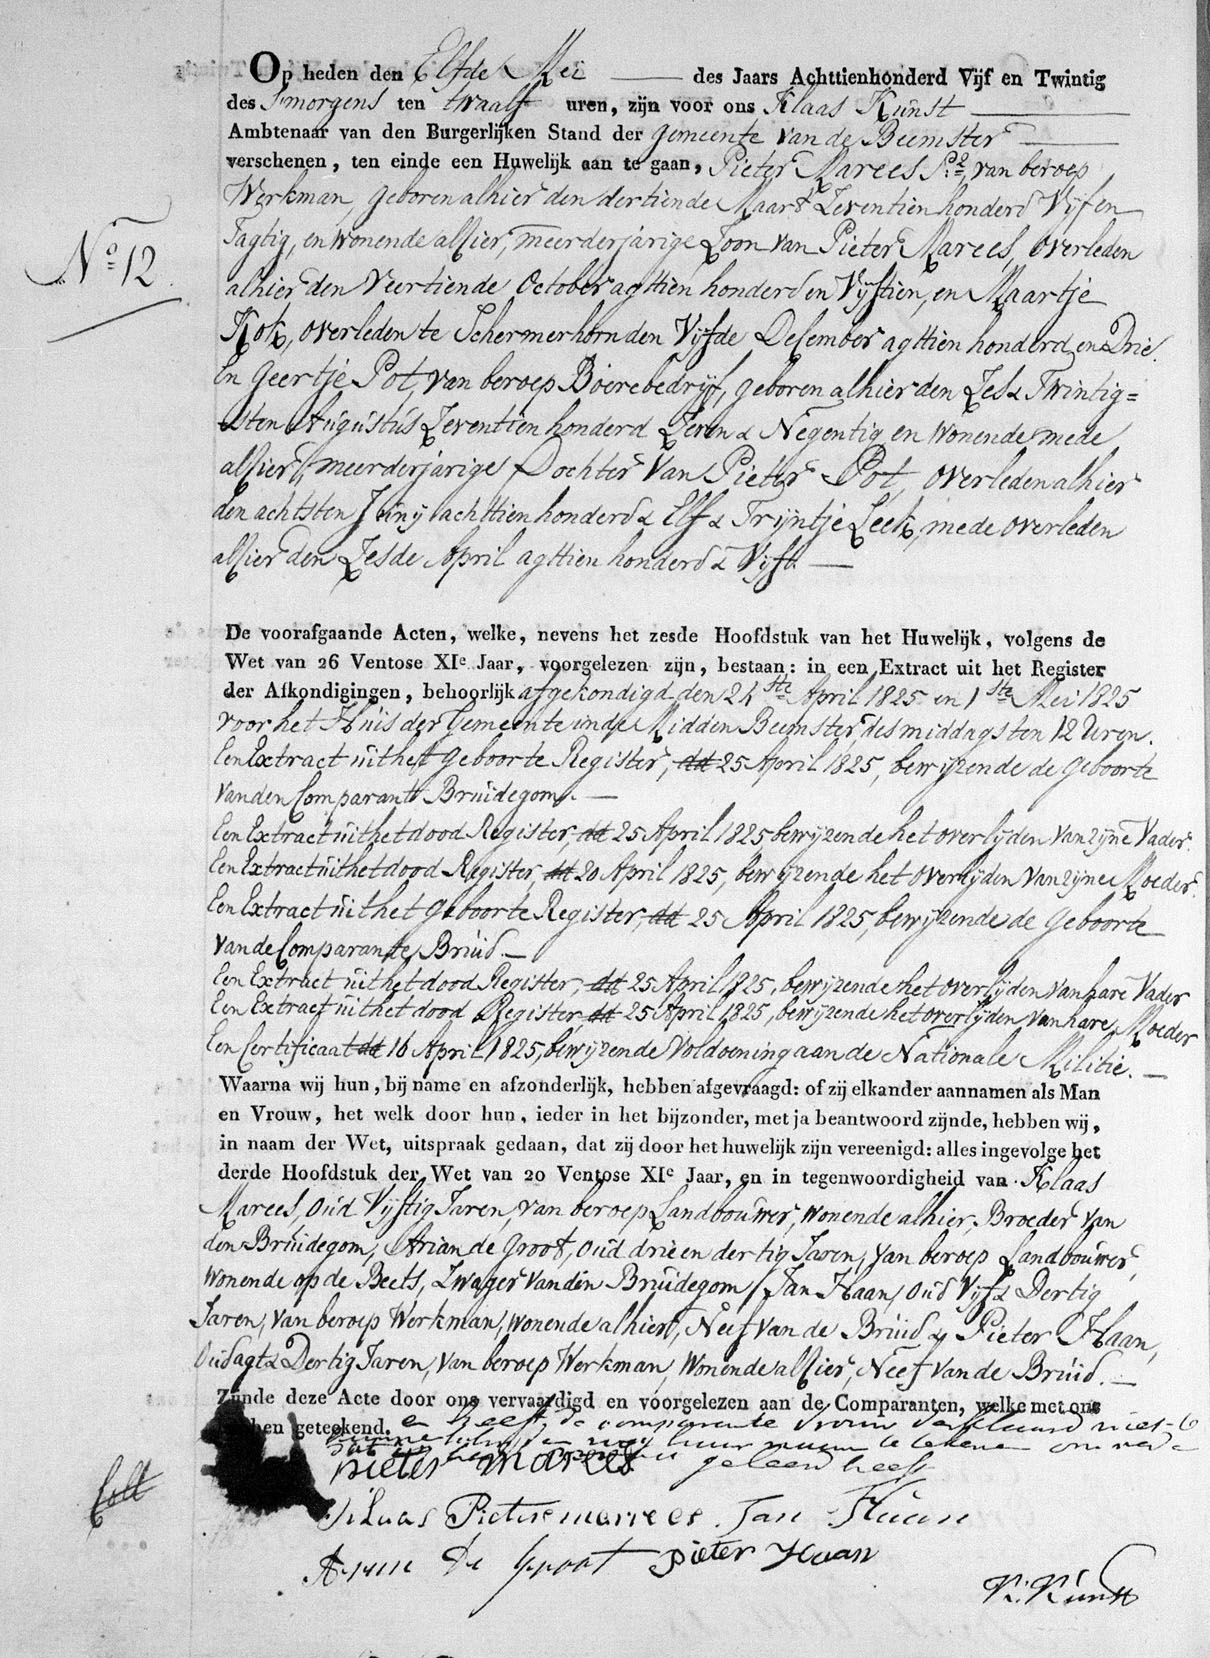 Op heden den Elfde Mei des Jaars Achttienhonderd Vijf en Twintig
des Smorgens ten twaalf uren, zijn voor ons Klaas Kunst
Ambtenaar van den Burgerlijken Stand der gemeente van de Beemster
verschenen, ten einde een Huwelijk aan te gaan, Pieter Marees Pz, van beroep
Werkman, geboren alhier den dertiende Maart Zeventien honderd Vijf en
No 12
Tagtig, en wonende alhier, meerderjarige Zoon van Pieter Marees, overleden
alhier den Veertiende October agttien honderd en Vijftien, en Maartje
Kok, overleden te Schermerhorn den Vijfde December agttien honderd en Drie.
En Geertje Pot, van beroep Boerebedrijf, geboren alhier den Zes & Twintig=
sten Augustus Zeventien honderd Zeven & Negentig en wonende mede
alhier, meerderjarige Dochter van Pieter Pot, overleden alhier
den achtsten Juny achttien honderd & Elf & Trijntje Leek, mede overleden
alhier den Zesde April agttien honderd & Vijf.
De voorafgaande Acten, welke, nevens het zesde Hoofdstuk van het Huwelijk, volgens de
Wet van 26 Ventose XIe Jaar, voorgelezen zijn, bestaan: in een Extract uit het Register
der Afkondigingen, behoorlijk afgekondigd den 24ste April 1825 en 1ste Mei 1825
voor het Huis der Gemeente in de Midden Beemster, des middags ten 12 Uren.
Een Extract uit het geboorte Register, dd 25 April 1825, bewijzende de geboorte
van den Comparant Bruidegom.
Een Extract uit het dood Register, dd 25 April 1825 bewijzende het overlyden van zijne Vader.
Een Extract uit het dood Register, dd 20 April 1825, bewijzende het overlijden van zijne Moeder.
Een Extract uit het geboorte Register, dd 25 April 1825, bewijzende de geboorte
van de Comparante Bruid.
Een Extract uit het dood Register, dd 25 April 1825, bewijzende het overlijden van hare Vader
Een Extract uit het dood Register, dd 25 April 1825, bewijzende het overlijden van hare Moeder
Een Certificaat dd 16 April 1825, bewijzende voldoening aan de Nationale Militie.
Waarna wij hun, bij name en afzonderlijk, hebben afgevraagd: of zij elkander aannamen als Man
en Vrouw, het welk door hun, ieder in het bijzonder, met ja beantwoord zijnde, hebben wij,
in naam der Wet, uitspraak gedaan, dat zij door het huwelijk zijn vereenigd: alles ingevolge het
derde Hoofdstuk der Wet van 20 Ventose XIe Jaar, en in tegenwoordigheid van Klaas
Marees, Oud Vijftig Jaren, van beroep Landbouwer, wonende alhier, Broeder van
den Bruidegom, Arian de Groot, oud drie en dertig Jaren, van beroep Landbouwer,
wonende op de Beets, Zwager van den Bruidegom, Jan Haan, oud Vijf & Dertig
Jaren, van beroep Werkman, wonende alhier, Neef van de Bruid & Pieter Haan,
Oud agt & Dertig Jaren, van beroep Werkman, wonende alhier, Neef van de Bruid.
Zijnde deze Acte door ons vervaardigd en voorgelezen aan de Comparanten, welke met ons
hebben geteekend. en heeft de comparante Vrouw verklaard niet te
geleerd heeft
pieter marees
Klaas Pieterse marrees. Jan Haan
Arian De Groot pieter Haan
K. Kunst